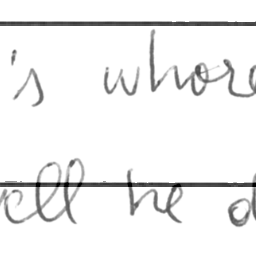 's whore
ell he d